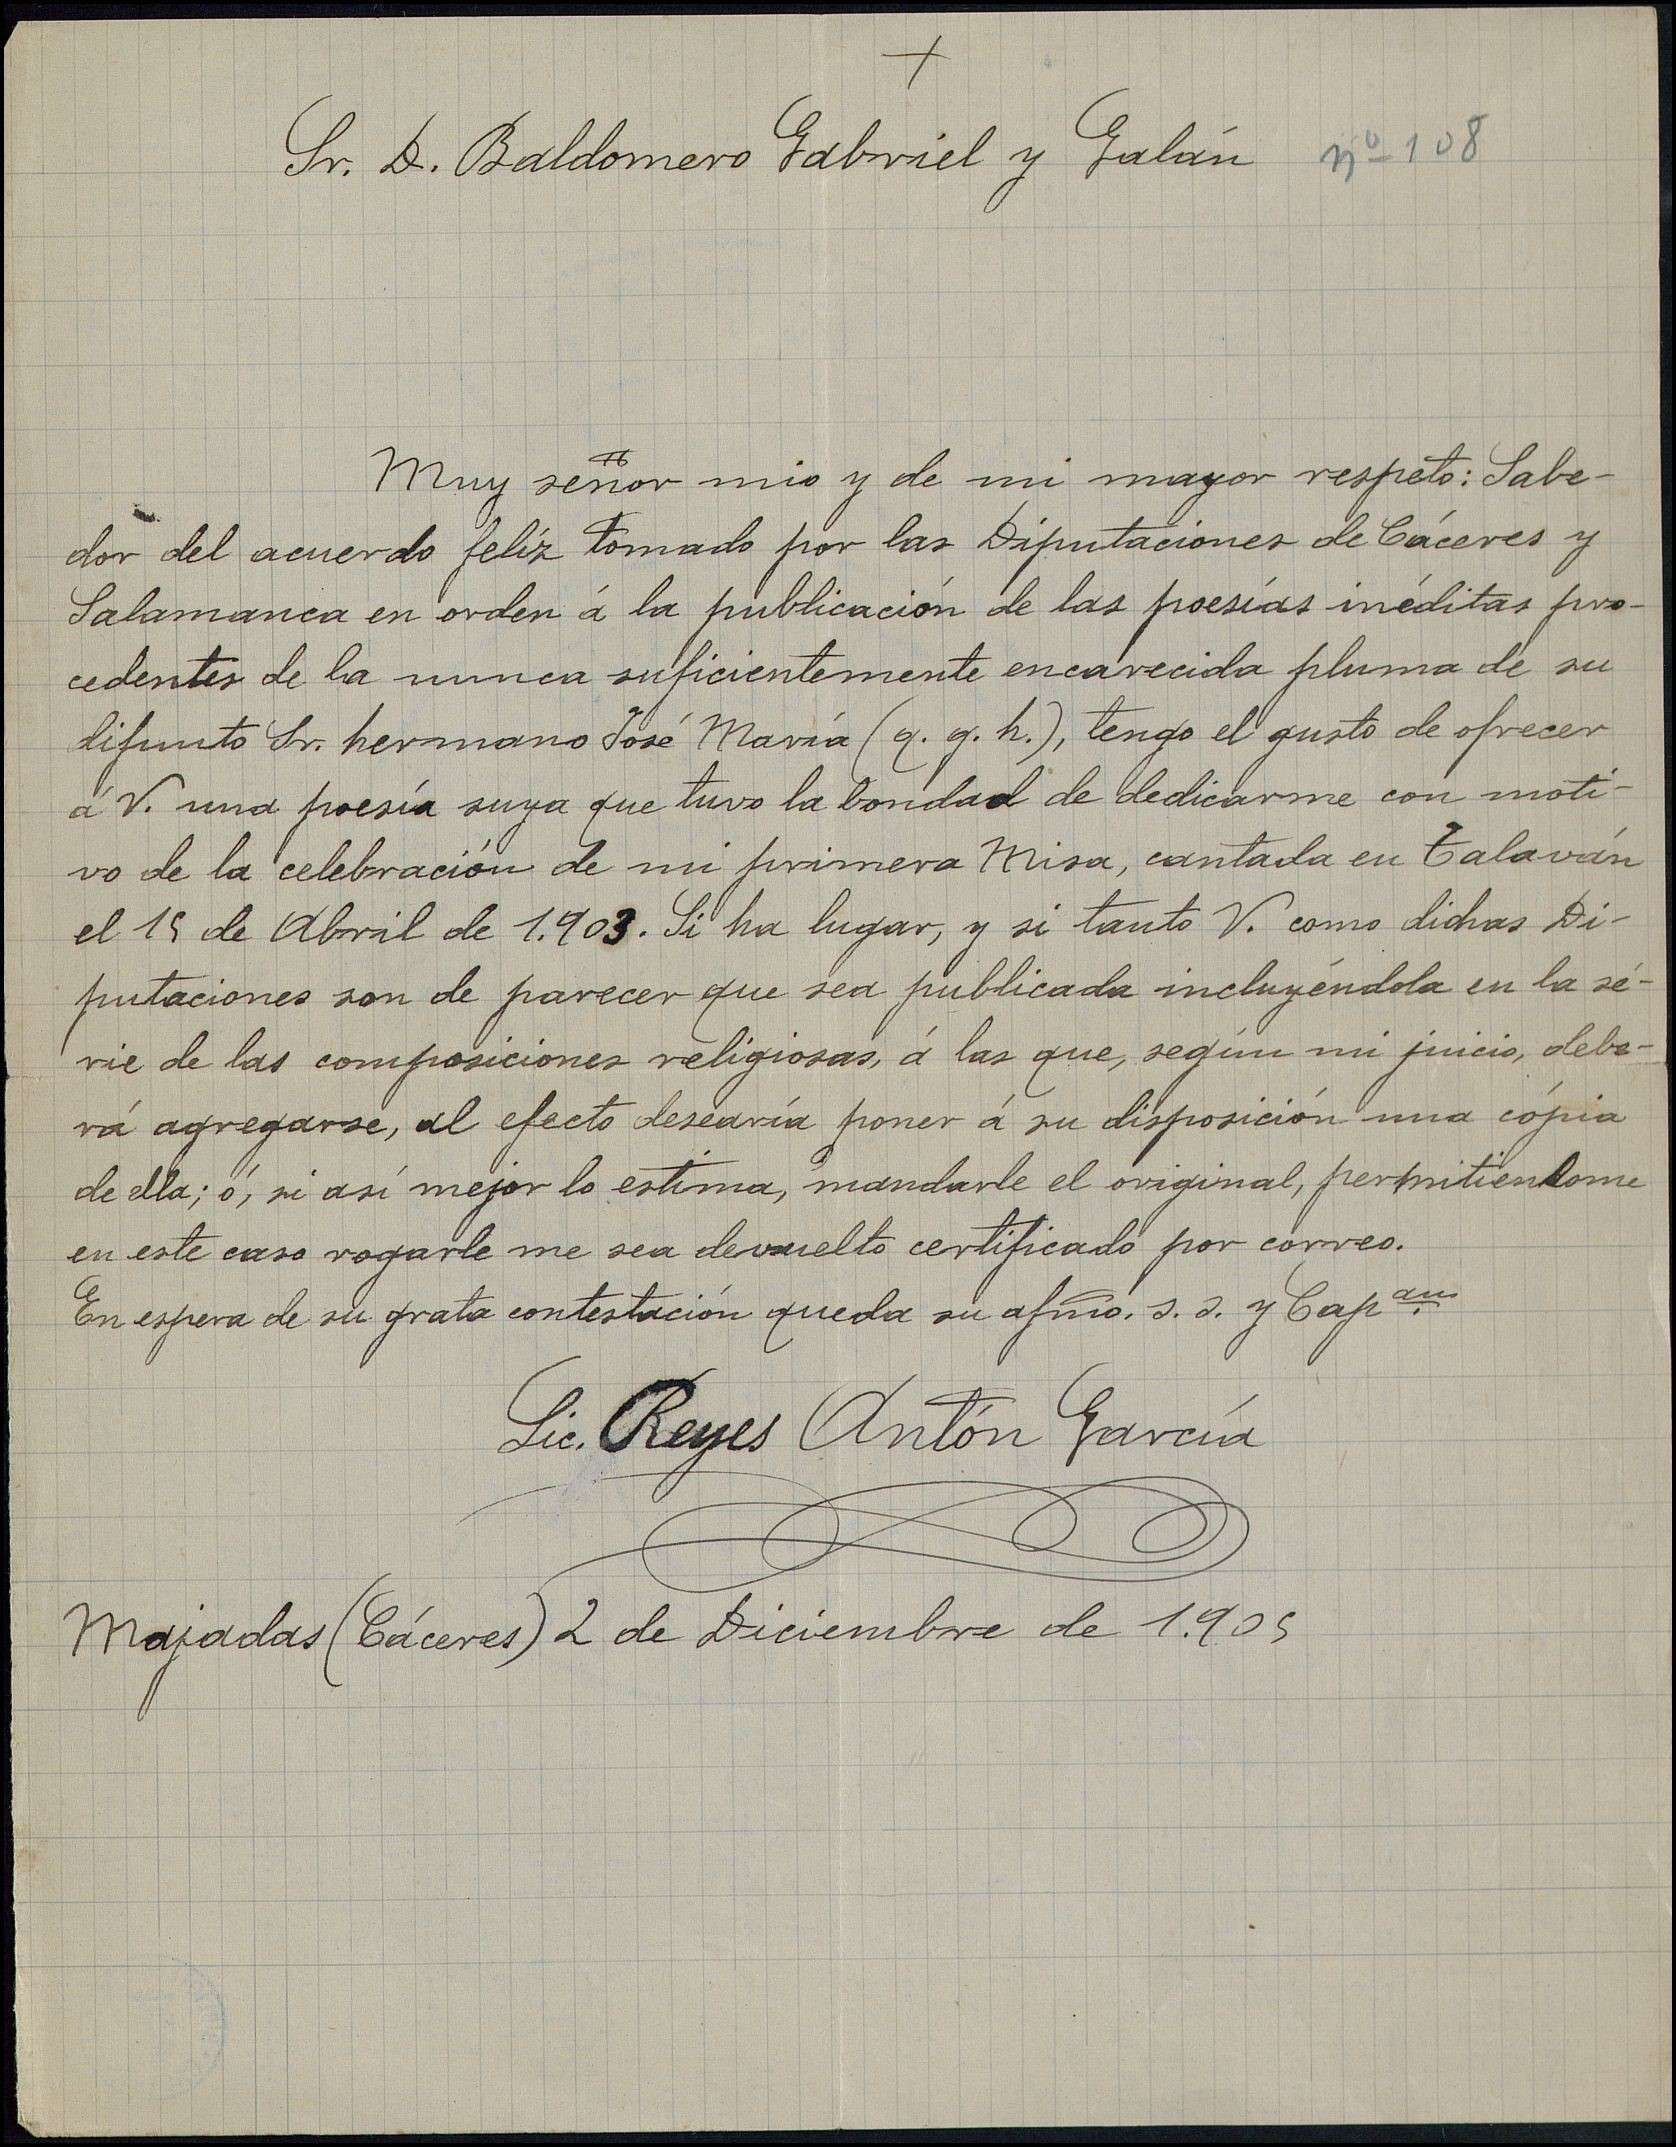 +
Sr. D. Baldomero Gabriel y Galán nº 108
Muy señor mio y de mi mayor respeto: Sabe-
dor del acuerdo feliz tomado por las Diputaciones de Cáceres y
Salamanca en orden á la publicación de las poesías inéditas pro-
cedentes de la nunca suficientemente encarecida pluma de su
difunto Sr. hermano José María (q. g. h.), tengo el gusto de ofrecer
á V. una poesía suya que tuvo la bondad de dedicarme con moti-
vo de la celebración de mi primera Misa, cantada en Talaván
el 15 de Abril de 1.903. Si ha lugar, y si tanto V. como dichas Di-
putaciones son de parecer que sea publicada incluyéndola en la sé-
rie de las composiciones religiosas, á las que, según mi juicio, debe-
rá agregarse, al efecto desearía poner á su disposición una cópia
de ella; ó, si así mejor lo estima, mandarle el original, permitiendome
en este caso rogarle me sea devuelto certificado por correo.
En espera de su grata contestación queda su afmo. s. s. y Capan.
Lic. Reyes Antón García
Majadas (Cáceres) 2 de Diciembre de 1.905